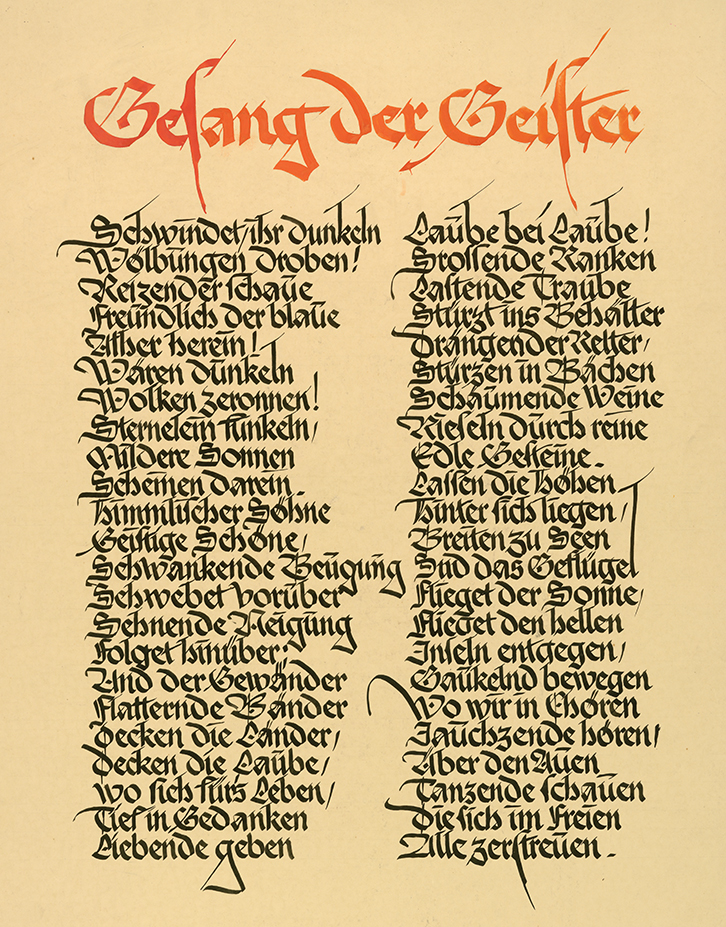 Gesang der Geister
Schwindet, ihr dunkeln
Wölbungen droben!
Reizender schaue
Freundlich der blaue
Äther herein!
Wären dunkeln
Wolken zeronnen!
Sternelein funkeln,
Mildere Sonnen
Scheinen darein.
Himmlischer Söhne
Geistige Schöne,
Schwankende Beugung
Schwebet vorüber
Sehnende Neigung
Folget hinüber;
Und der Gewänder
Flatternde Bänder
Decken die Länder,
Decken die Laube,
wo sich fürs Leben,
Tief in Gedanken
Liebende geben
Laube bei Laube!
Srossende Ranken
Lastende Traube
Stürzt ins Behälter
Drängender Kelter,
Stürzen in Bächen
Schäumende Weine
Rieseln durch reine
Edle Gesteine.
Lassen die Höhen
Hinter sich liegen,
Breiten zu Seen
das Geflügel
Flieget der Sonne,
Flieget den hellen
Inseln entgegen,
Gaukelnd bewegen
Wo wir in Chören
Jauchzende hören,
Über den Auen
Tanzende schauen
Die sich im Freien
Alle zerstreuen.